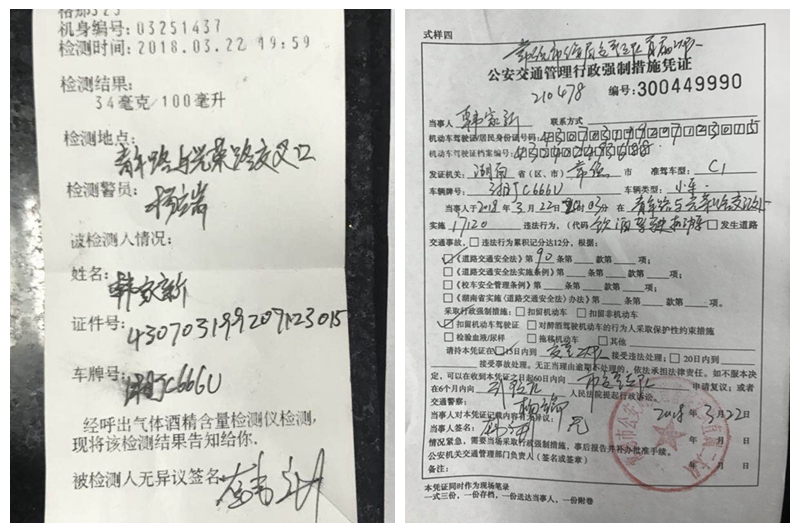 机身编号:03251437
检测时间:2018.03.22 19:59
检测结果:
34毫克/100毫升
检测地点:
青年路与光荣路交叉口
检测警员:
被检测人情况:
姓名:
韩家新
证件号:
430703199209123015
车牌号:
湘JC666U
经呼出气体酒精含量检测仪检测,
现将该检测结果告知给你.
被检测人无异议签名
式样四
公安交通管理行政强制措施凭证
210478 编号:300449990
当事人 韩家新 联系方式
机动车驾驶证/居民身份证号码
机动车驾驶证档案编号
发证机关: 湖南 省(区、市) 常德 市 准驾车型: C1
车辆牌号: 湘JC666U 车辆类型: 小车
当事人于2018年3月22日 03分 在 青年路与光荣路交叉口
实施 17120 违法行为,(代码 □发生道路
交通事故,□违法行为累积记分达12分,根据:
《道路交通安全法》第90条第 款第 项;
□《道路交通安全法实施条例》第 条第 款第 项;
□《校车安全管理条例》第 条第 款第 项;
□《湖南省实施〈道路交通安全法〉办法》第 条第 款第 项。
采取行政强制措施: □扣留机动车 □扣留非机动车
扣留机动车驾驶证 □对醉酒驾驶机动车的行为人采取保护性约束措施
□检验血液/尿样 □拖移机动车 □其他
请持本凭证在 15日内到 接受违法处理;□20日内到
接受事故处理。无正当理由逾期不处理的,依法承担法律责任。如不服本决
定,可以在收到本凭证之日起60日内向 申请复议;或者
在6个月内向 人民法院提起行政诉讼。
交通警察:
当事人对本凭证记载内容有无异议: 2018年3月22日
当事人签名: 年 月 日
情况紧急,需要当场采取行政强制措施,事后报告并补办批准手续。
公安机关交通管理部门负责人(签名或签章) 年 月 日
备注:
本凭证同时作为现场笔录
一式三份,一份存档,一份送达当事人,一份附卷